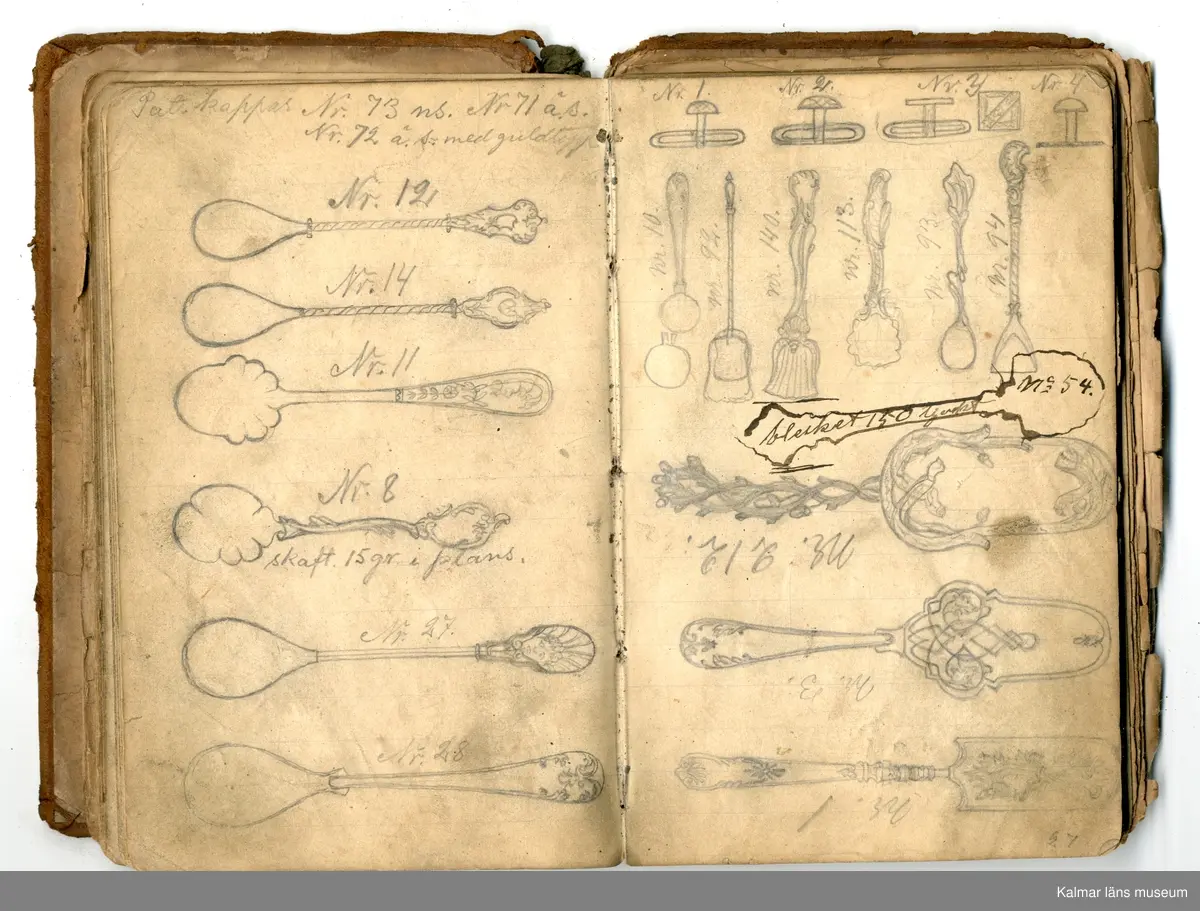 Pat. kappas Nr. 73 ns. Nr 71 ä.s.
Nr. 72 ä.s. med guld
Nr. 12
Nr. 14
Nr. 11
Nr. 8
skaft. 15 gr. i plans.
Nr. 27.
Nr. 28
Nr. 1.
Nr. 2.
Nr. 3
Nr. 4
Nr. 10.
Nr. 92.
Nr. 140.
Nr. 113.
Nr. 93.
Nr. 94
No 54.
blecket 150 tjockt
Nr. 212.
Nr. 3.
Nr. 1
27
Kalmar läns museum